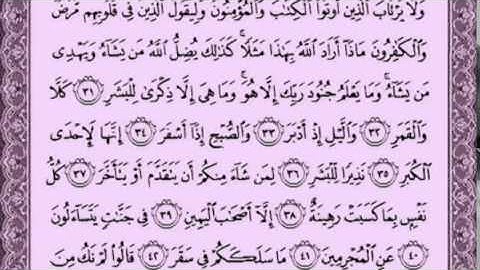 وَلَا يَرْتَابَ الَّذِينَ أُوتُوا الْكِتَابَ وَالْمُؤْمِنُونَ وَلِيَقُولَ الَّذِينَ فِي قُلُوبِهِم مَّرَضٌ
وَالْكَافِرُونَ مَاذَا أَرَادَ اللَّهُ بِهَٰذَا مَثَلًا ۚ كَذَٰلِكَ يُضِلُّ اللَّهُ مَن يَشَاءُ وَيَهْدِي
مَن يَشَاءُ ۚ وَمَا يَعْلَمُ جُنُودَ رَبِّكَ إِلَّا هُوَ ۚ وَمَا هِيَ إِلَّا ذِكْرَىٰ لِلْبَشَرِ ٣١ كَلَّا
وَالْقَمَرِ ٣٢ وَاللَّيْلِ إِذْ أَدْبَرَ ٣٣ وَالصُّبْحِ إِذَا أَسْفَرَ ٣٤ إِنَّهَا لَإِحْدَى
الْكُبَرِ ٣٥ نَذِيرًا لِّلْبَشَرِ ٣٦ لِمَن شَاءَ مِنكُمْ أَن يَتَقَدَّمَ أَوْ يَتَأَخَّرَ ٣٧ كُلُّ
نَفْسٍ بِمَا كَسَبَتْ رَهِينَةٌ ٣٨ إِلَّا أَصْحَابَ الْيَمِينِ ٣٩ فِي جَنَّاتٍ يَتَسَاءَلُونَ
٤٠ عَنِ الْمُجْرِمِينَ ٤١ مَا سَلَكَكُمْ فِي سَقَرَ ٤٢ قَالُوا لَمْ نَكُ مِنَ